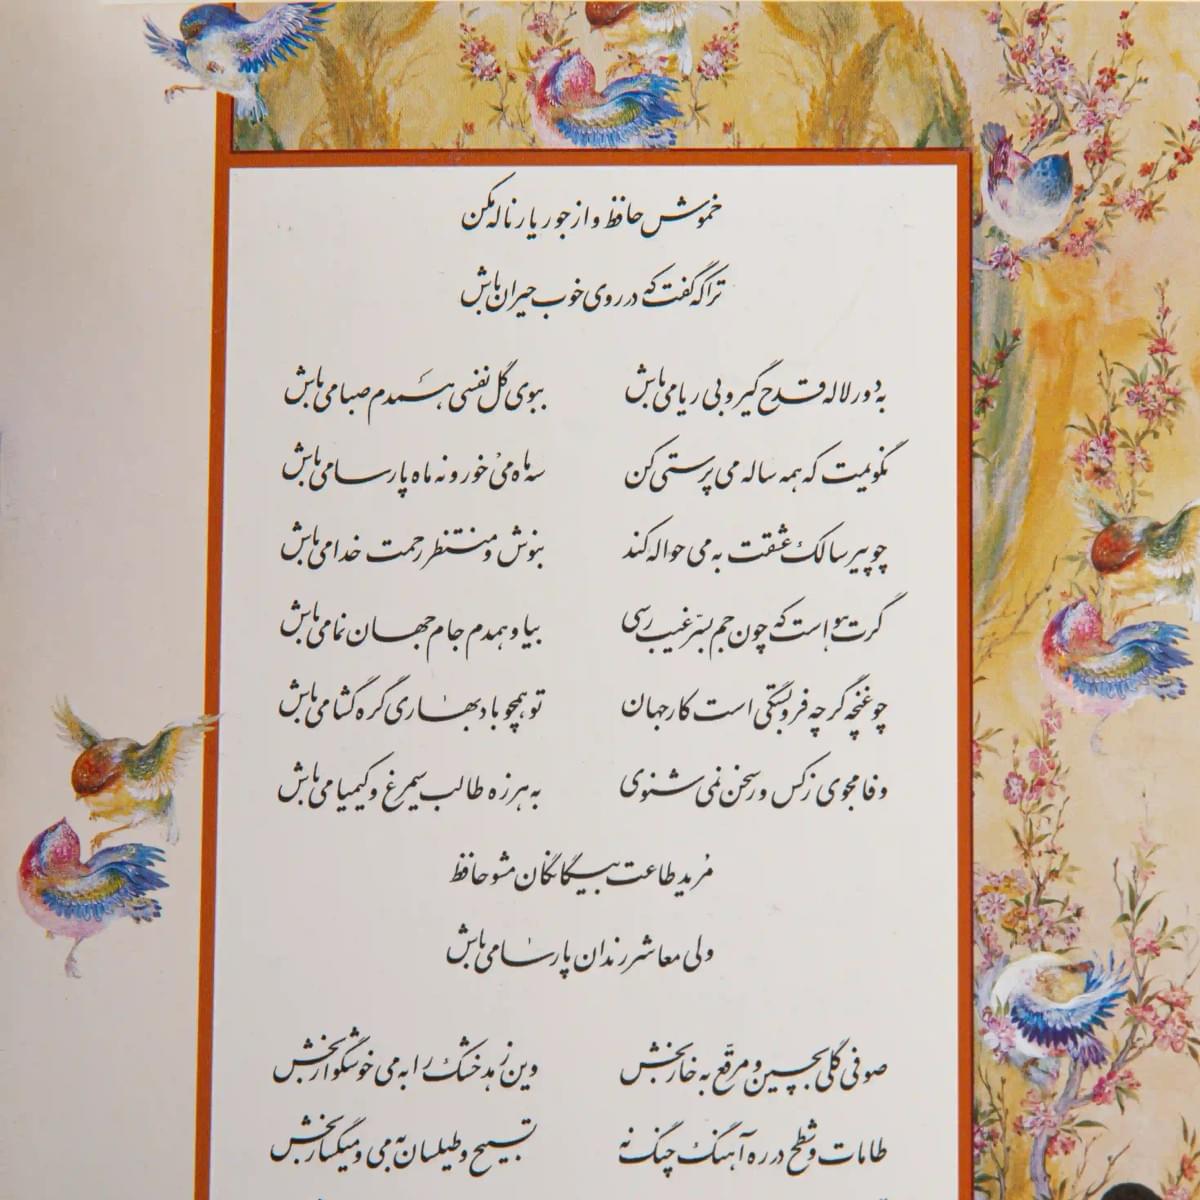 خموش حافظ و از جور یار ناله مکن
ترا که گفت که در روی خوب حیران باش
به دور لاله قدح گیر و بی ریا می باش
ببوی گل نفسی همدم صبا می باش
نگویمت که همه ساله می پرستی کن
سه ماه می خور و نه ماه پارسا می باش
چو پیر سالک عشقت به می حواله کند
بنوش و منتظر رحمت خدا می باش
گرت هواست که چون جم بسر غیب رسی
بیا و همدم جام جهان نما می باش
چو غنچه گر چه فروبستگی است کار جهان
تو همچو باد بهاری گره گشا می باش
وفا مجوی ز کس ور سخن نمی شنوی
به هرزه طالب سیمرغ و کیمیا می باش
مُرید طاعت بیگانگان مشو حافظ
ولی معاشر رندان پارسا می باش
صوفی گلی بچین و مرقّع به خار بخش
وین زهد خشک را به می خوشگوار بخش
طامات و شطح در ره آهنگ چنگ نه
تسبیح و طیلسان به می و میگسار بخش